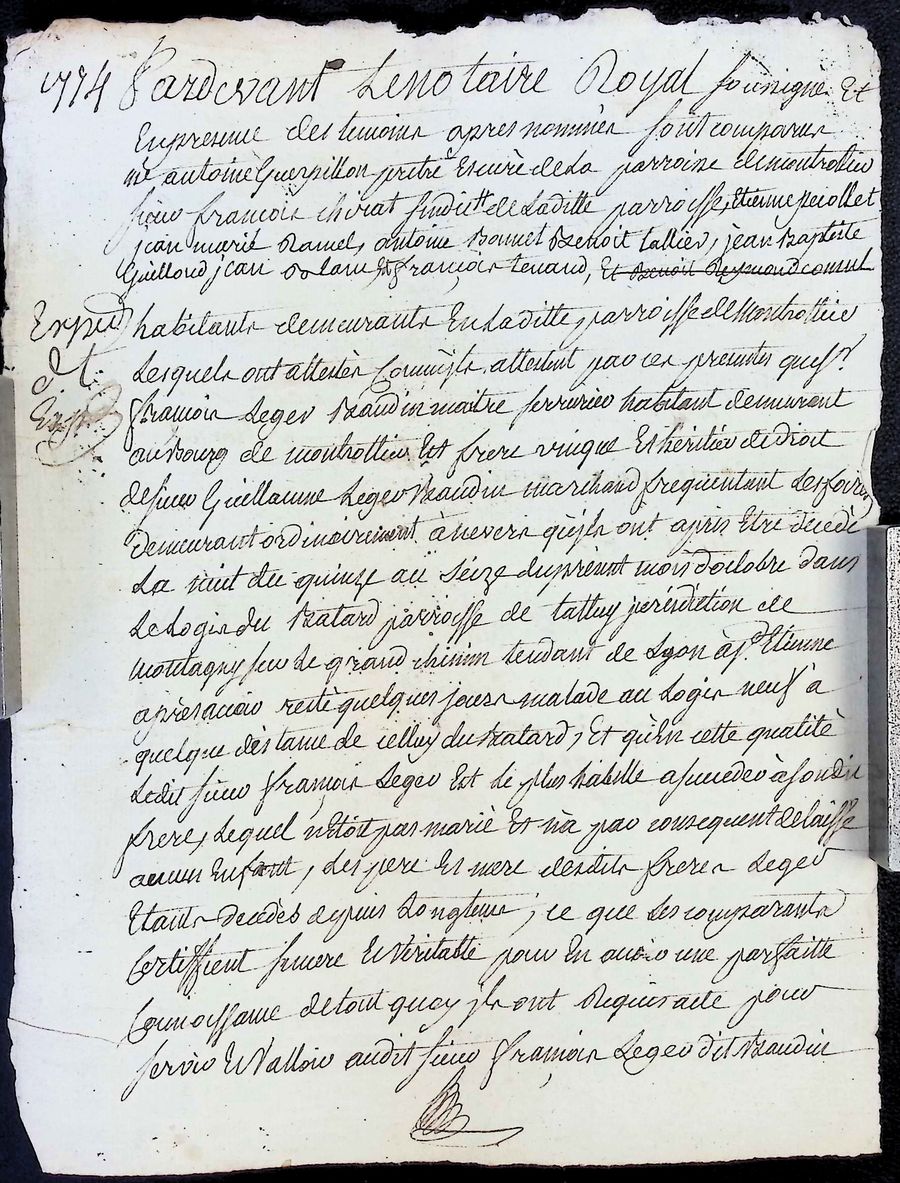 1774 Pardevant Le notaire Royal soussigné Et
En presence des temoins apres nommés sont comparus
me antoine Guerpillon pretre Et curé de La parroisse de montrottier
sieur françois chirat sindict de Laditte parroisse, Etienne peiollet
jean marie Ramel, antoine Bonnet Benoit Lallier, jean Baptiste
Guilloud jean Et françois tenand, Et Benoit Reymond consul
Exped
habitants demeurants En Laditte parroisse de Montrottier
d. t.
Lesquels ont attestés Comm'ils attestent par ces presentes que sr.
Exped
françois Leger Baudin maitre serrurier habitant demeurant
au Bourg de montrottier Est frere unique Et héritier de droit
de sieur Guillaume Leger Baudin marchand frequentant Les foires
demeurant ordinairement à nevers qu'ils ont apris Etre décedé
La nuit du quinze au seize du présent mois d'octobre dans
Le Logis du Batard parroisse de talluy jurisdition de
montagny sur Le grand chemin tendant de Lyon à st. Etienne
après avoir resté quelques jours malade au Logis neuf à
quelque distance de celluy du Batard, Et qu'En cette qualité
Ledit sieur françois Leger Est Le plus habille a succeder à sondit
frere, Lequel n'étoit pas marié Et n'a par consequent delaissé
aucun Enfant, Les pere Et mere desdits freres Leger
Etants decedés depuis Longtems, ce que Les comparants
Certiffient sincere Et Veritable pour En avoir une parfaitte
Connoissance de tout quoy ils ont Requis acte pour
servir Et Valloir audit sieur françois Leger dit Baudin